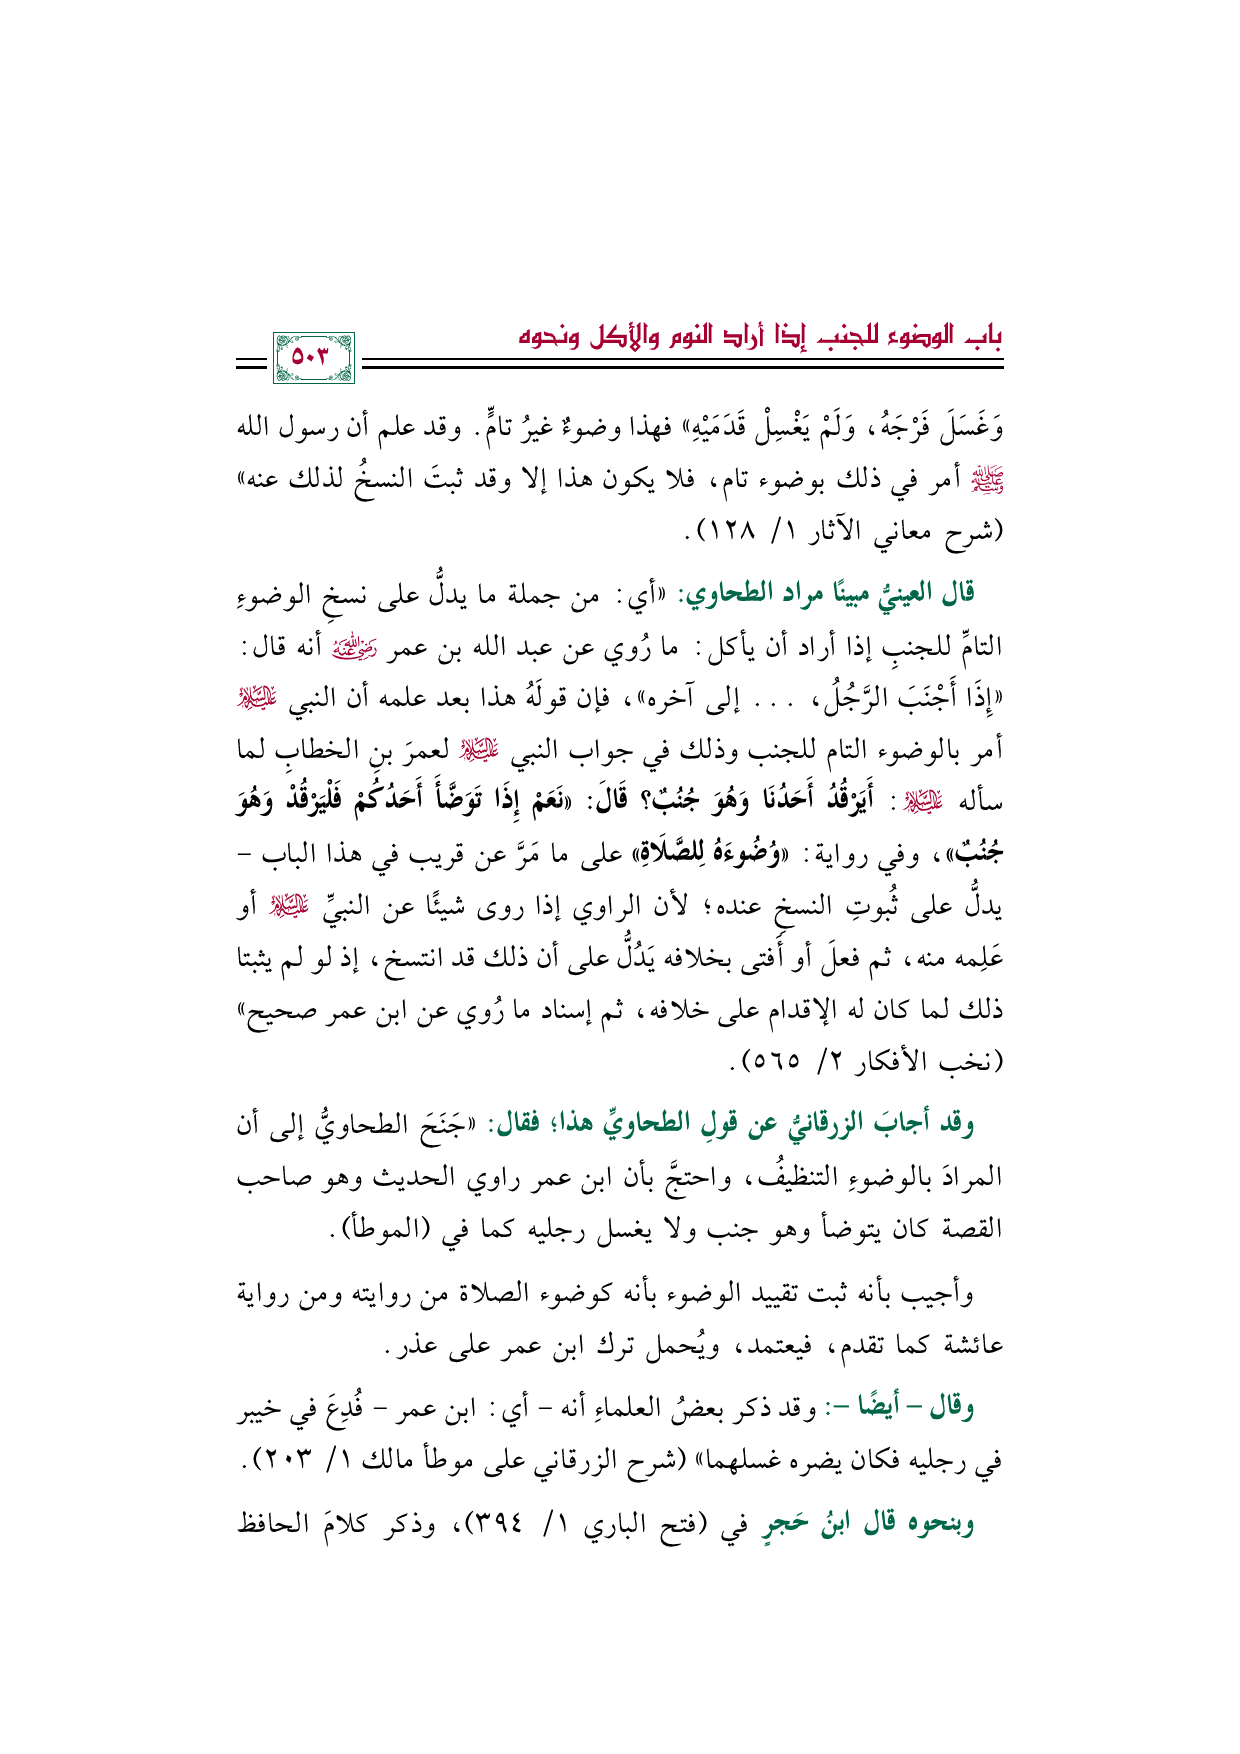 باب الوضوء للجنب إذا أراد النوم والأكل ونحوه
٥٠٣
وَغَسَلَ فَرْجَهُ، وَلَمْ يَغْسِلْ قَدَمَيْهِ» فهذا وضوءٌ غيرُ تامٍّ. وقد علم أن رسول الله
ﷺ أمر في ذلك بوضوء تام، فلا يكون هذا إلا وقد ثبتَ النسخُ لذلك عنه»
(شرح معاني الآثار ١/ ١٢٨).
قال العينيُّ مبينًا مراد الطحاوي: «أي: من جملة ما يدلُّ على نسخِ الوضوءِ
التامِّ للجنبِ إذا أراد أن يأكل: ما رُوي عن عبد الله بن عمر رضي الله عنه أنه قال:
«إِذَا أَجْنَبَ الرَّجُلُ، ... إلى آخره»، فإن قولَهُ هذا بعد علمه أن النبي عليه السلام
أمر بالوضوء التام للجنب وذلك في جواب النبي عليه السلام لعمرَ بنِ الخطابِ لما
سأله عليه السلام: أَيَرْقُدُ أَحَدُنَا وَهُوَ جُنُبٌ؟ قَالَ: «نَعَمْ إِذَا تَوَضَّأَ أَحَدُكُمْ فَلْيَرْقُدْ وَهُوَ
جُنُبٌ»، وفي رواية: «وُضُوءَهُ لِلصَّلَاةِ» على ما مَرَّ عن قريب في هذا الباب -
يدلُّ على ثُبوتِ النسخِ عنده؛ لأن الراوي إذا روى شيئًا عن النبيِّ عليه السلام أو
عَلِمه منه، ثم فعلَ أو أَفتى بخلافه يَدُلُّ على أن ذلك قد انتسخ، إذ لو لم يثبتا
ذلك لما كان له الإقدام على خلافه، ثم إسناد ما رُوي عن ابن عمر صحيح»
(نخب الأفكار ٢/ ٥٦٥).
وقد أجابَ الزرقانيُّ عن قولِ الطحاويِّ هذا؛ فقال: «جَنَحَ الطحاويُّ إلى أن
المرادَ بالوضوءِ التنظيفُ، واحتجَّ بأن ابن عمر راوي الحديث وهو صاحب
القصة كان يتوضأ وهو جنب ولا يغسل رجليه كما في (الموطأ).
وأجيب بأنه ثبت تقييد الوضوء بأنه كوضوء الصلاة من روايته ومن رواية
عائشة كما تقدم، فيعتمد، ويُحمل ترك ابن عمر على عذر.
وقال - أيضًا -: وقد ذكر بعضُ العلماءِ أنه - أي: ابن عمر - فُدِعَ في خيبر
في رجليه فكان يضره غسلهما» (شرح الزرقاني على موطأ مالك ١/ ٢٠٣).
وبنحوه قال ابنُ حَجرٍ في (فتح الباري ١/ ٣٩٤)، وذكر كلامَ الحافظ